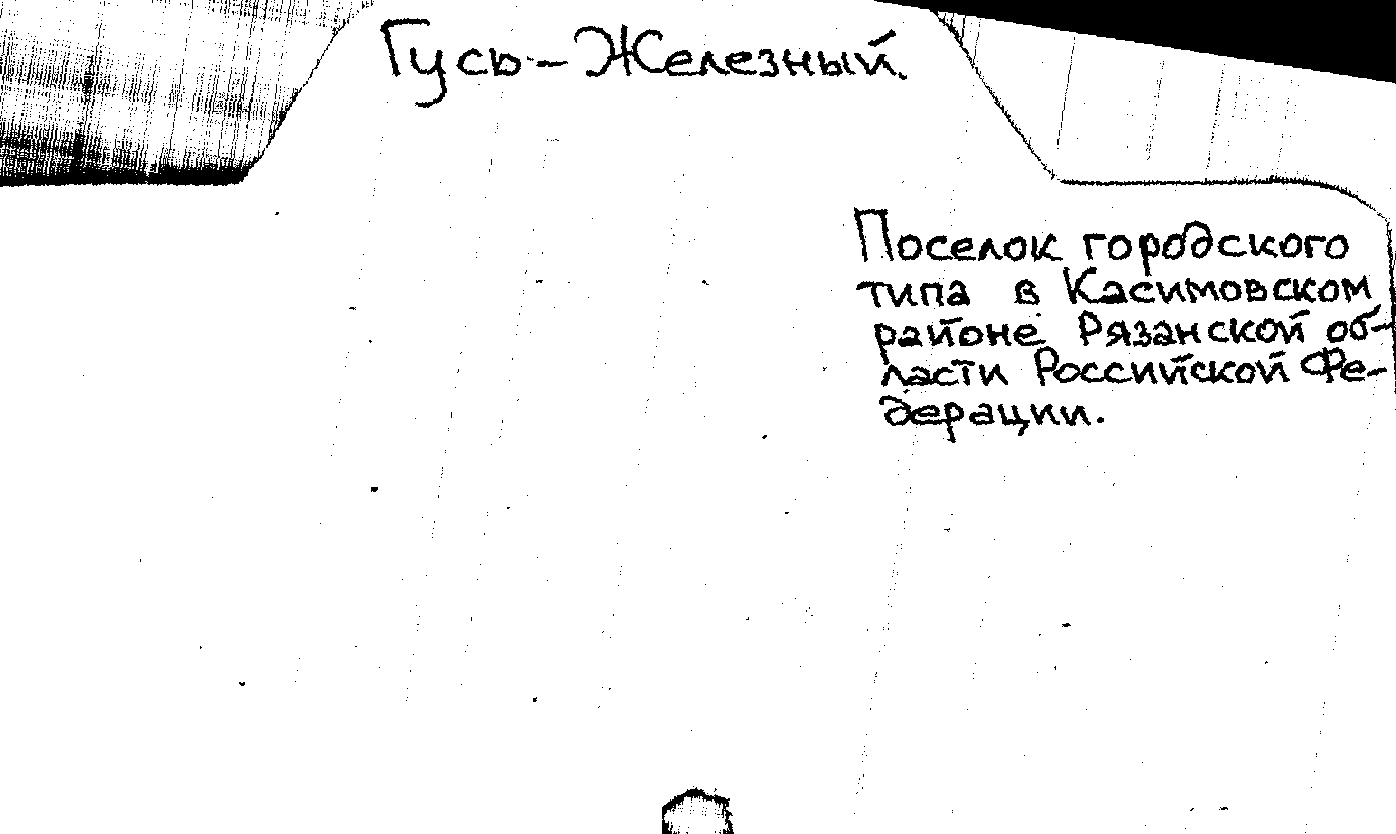 Гусь-Железный.
Поселок городского
типа в Касимовском
районе Рязанской об-
ласти Российской Фе-
дерации.